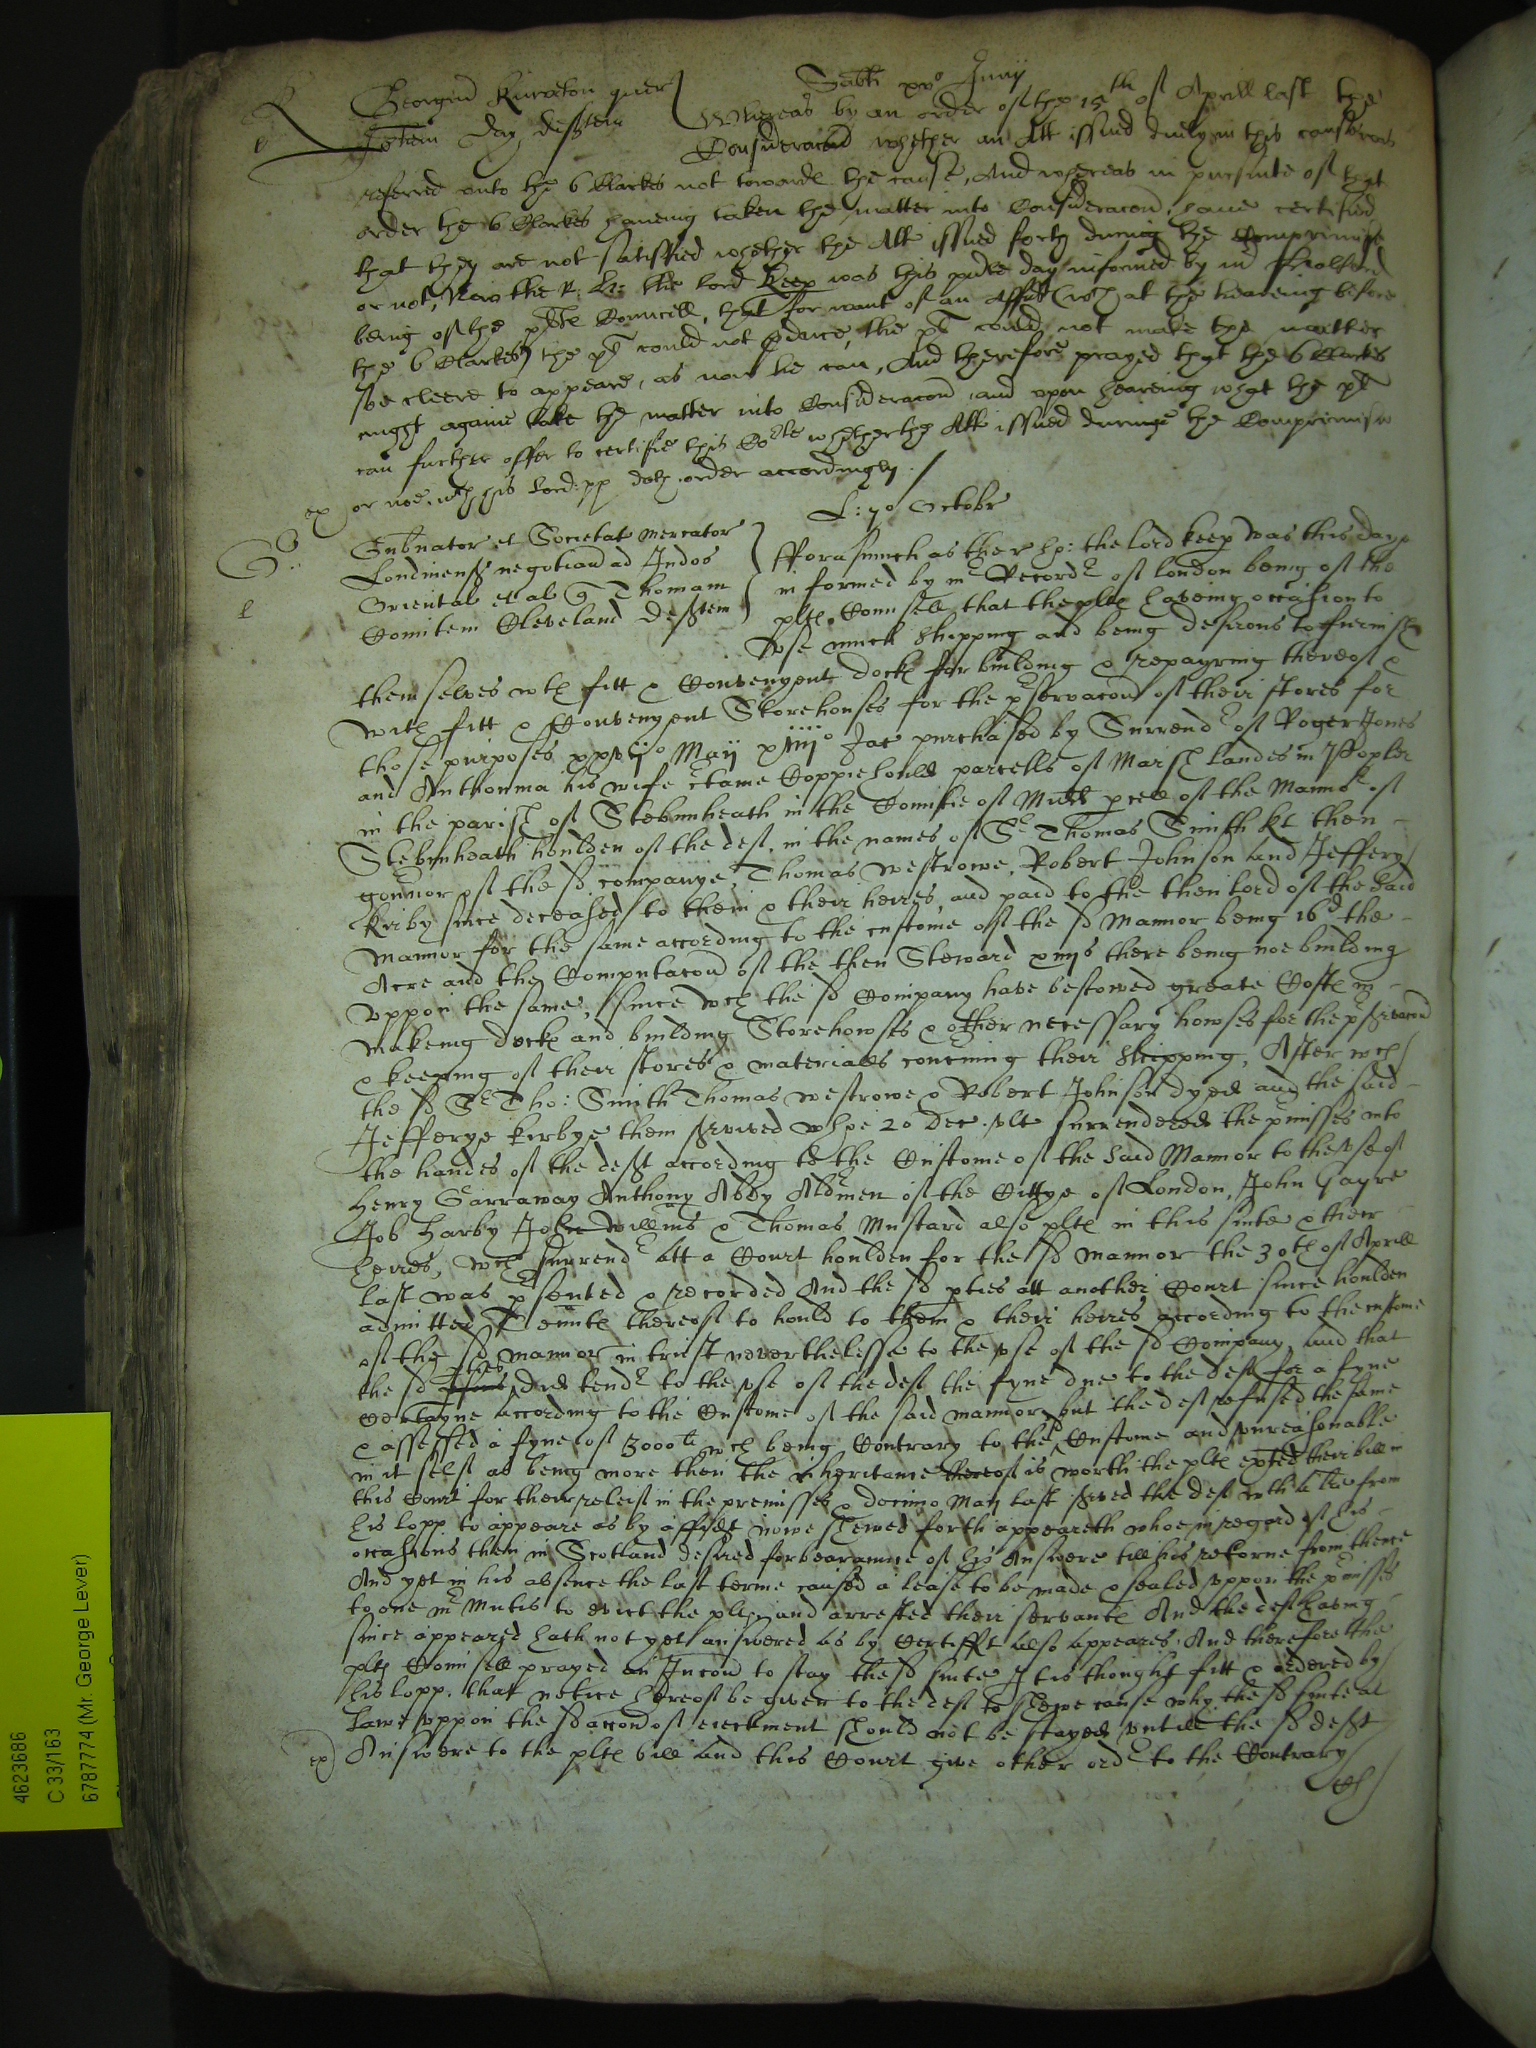 Sabti xvo Junij
Georgiu Kinaston quer
Johem Day deften
Whereas by an order of the 15th of Aprill last the
Consideracon whether an Att issued duely in this cause was
referred unto the 6 Clarkes not towards the cause, And whereas in pursuite of that
order the 6 Clarkes haveing taken the matter into Consideracon, have certified
that they are not satisfied whether the Att issued forth during the Comprimise
or not, Now the R: Ho: the lord Keep was this pnte day informed by mr
being of the plts Councell, that for want of an Affidt (wch at the heareing before
the 6 Clarkes) the plt could not pduce, the plt could not make the matter
soe cleere to appeare, as now he can, And therefore prayed that the 6 Clarkes
might againe take the matter into Consideracon and upon heareing what the plt
can further offer to certifie this Corte whether the Att issued during the Comprimise
ex) or noe, wch his Lord:pp doth order accordingly./
L: 7o Octobr
Gubnator et Societat mercator
Londinens negotian ad Indos
Oriental et al q Thomam
Comitem Cleveland deften
fforasmuch as the r hp: the lord keep was this day
informed by mr Recordr of london being of the
plts Counsell that the plts haveing occasion to
use much shipping and being desirous to furnish
themselves wth fitt & Convenyent docks for building & repayring thereof &
with fitt & Convenyent Storehouses for the pservacon of their stores for
those purposes xxviijo Maij xiiijo Jac purchased by Surrendr of Roger Jones
and Anthonina his wife ctaine Coppiehould parcells of Marsh landes in Popler
in the parish of Stebunheath in the Countie of Midd pcell of the Mannor of
Stebunheath houlden of the deft. in the names of Sr Thomas Smith kt then
gounor of the sd companye, Thomas westrowe, Robert Johnson and Jeffery
Kirby since deceased to them & their heires, and paid to the then lord of the said
Mannor for the same according to the custome of the sd Mannor being 16d the
Acre and the Computacon of the then Steward xiiijs there being noe building
uppon the same, since wch the sd Company have bestowed greate Costs in
makeing docks and building Storehowses & other necessary howses for the pservacon
& keeping of their stores & materialls concning their shipping, After wch
the sd Sr Tho: Smith Thomas westrowe & Robert Johnson dyed and the said
Jefferye Kirbye them survived whoe 20 Dec. ult surrendered the pmisses into
the handes of the deft according to the Custome of the said Mannor to the use of
Henry Garraway Anthony Abdy Aldmen of the Cittye of London, John Gayre
Job Harby John Willms & Thomas Mustard also plts in this suite & their
heires, wch surrendr att a Court houlden for the sd mannor the 30th of Aprill
last was psented & recorded And the sd pties att another Court since houlden
admitted Tennts thereof to hould to them & their heires according to the custome
of the sd mannor in trust neverthelesse to the use of the sd Company, and that
the sd pties did tendr to the use of the deft the fyne due to the deft for a fyne
certayne according to the Custome of the said mannor but the deft refused the same
& assessed a fyne of 3000li wch being Contrary to the sd Custome and unreasonable
in it self as being more then the inheritance thereof is worth the plts exhted their bill in
this Court for their releif in the premisses & decimo Maij last served the deft wth a lre from
his lopp to appeare as by affidt nowe shewed forth appeareth whoe in regard of his
occasions then in Scotland desired forbearannce of his Answere till his retorne from thence
And yet in his absence the last terme caused a lease to be made & sealed uppon the pmisses
to one mr Mutis to evict the plts and arrested their servants And the deft haveing
since appeared hath not yet answered as by Certifft also appeares. And therefore the
plts Counsell prayed an Incon to stay the sd suite It is thought fitt & ordered by
his lopp. that notice hereof be given to the deft to shewe cause why the sd suite at
lawe uppon the sd accon of eiectment should not be stayed untill the sd deft
ex) Answere to the plts bill and this Court give other ordr to the Contrary
4623686
C 33/163
6787774 (Mr. George Lever)